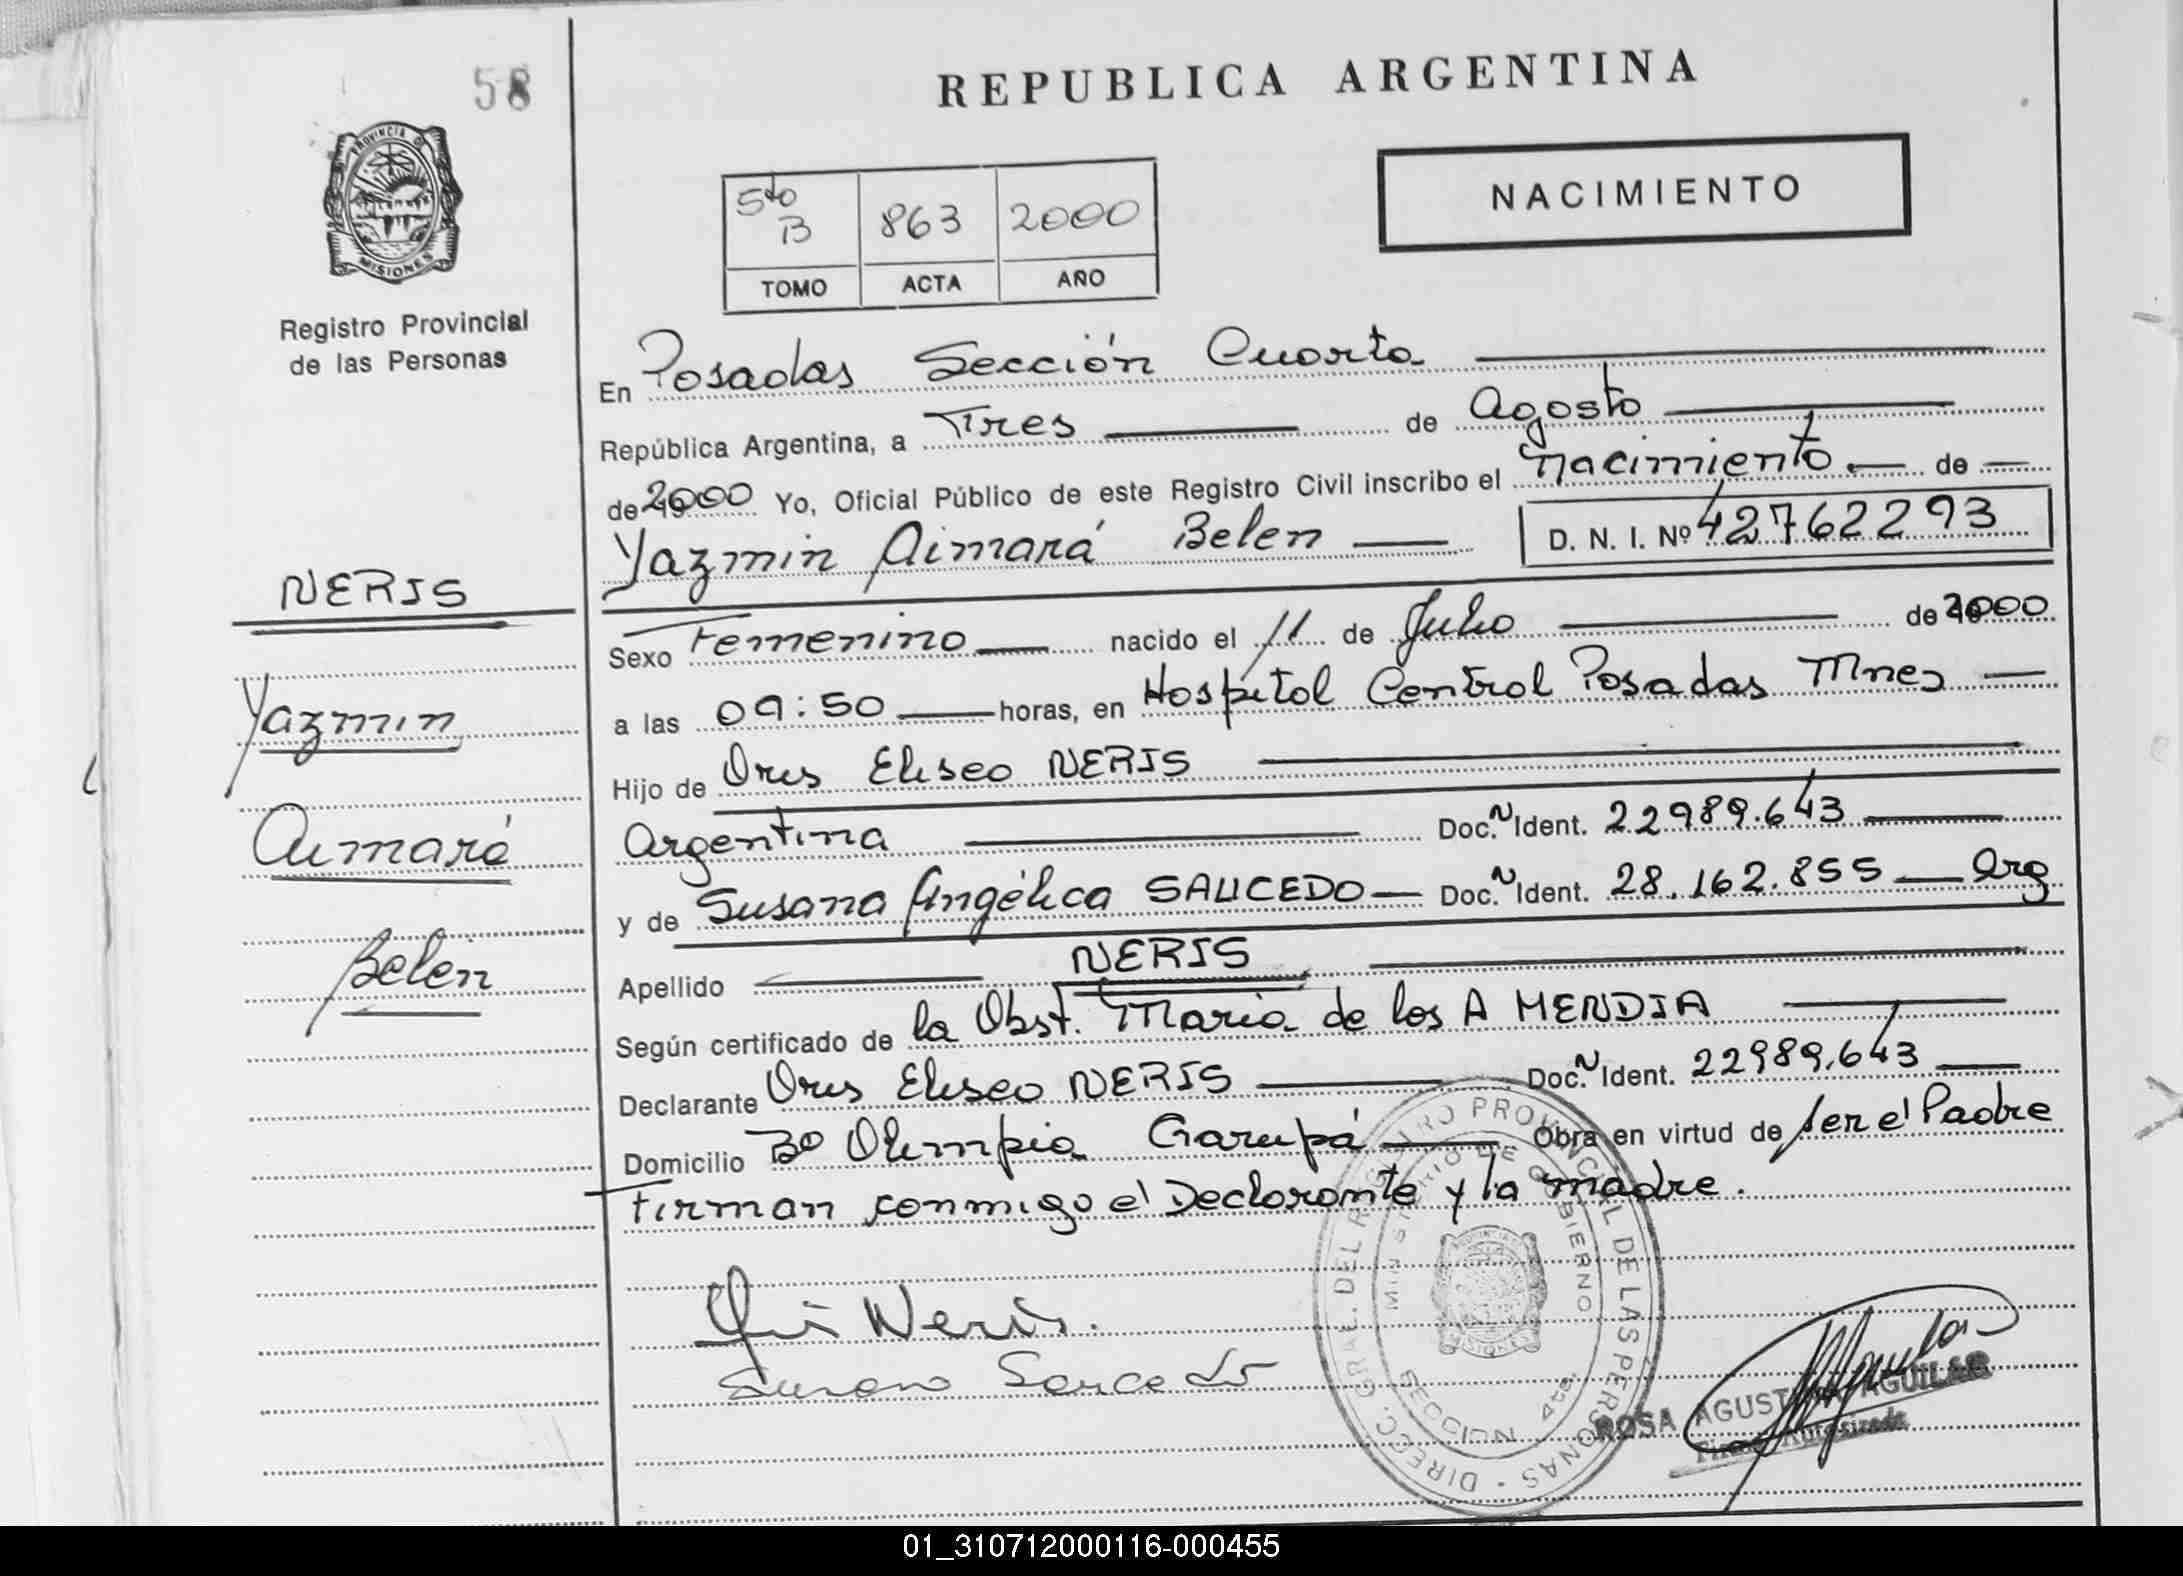 58
REPUBLICA ARGENTINA
PROVINCIA DE
MISIONES
Registro Provincial
de las Personas
NACIMIENTO
5to B 863 2000
TOMO ACTA AÑO
En Posadas Sección Cuarta
República Argentina, a Tres de Agosto
de 2000 Yo, Oficial Público de este Registro Civil inscribo el nacimiento de
Yazmin Aimará Belen D. N. I. Nº 42762293
NERIS
Yazmin
Aimará
Belen
Sexo Femenino nacido el 11 de Julio de 2000
a las 09:50 horas, en Hospital Central Posadas Mnes
Hijo de Oris Eliseo NERIS
Argentina Doc. N Ident. 22989.643
y de Susana Angélica SAUCEDO Doc. N Ident. 28.162.855 Arg
Apellido NERIS
Según certificado de la Obst. Maria de los A MENDIA
Declarante Oris Eliseo NERIS Doc. N Ident. 22989.643
Domicilio Bº Olimpia Garupá Obra en virtud de ser el Padre
Firman conmigo el Declarante y la madre.
Neris.
DIRECC. GRAL. DEL REGISTRO PROVINCIAL DE LAS PERSONAS
MINISTERIO DE GOBIERNO
SECCION 4ta.
ROSA AGUSTINA AGUILAR
Firma Autorizada
01_310712000116-000455